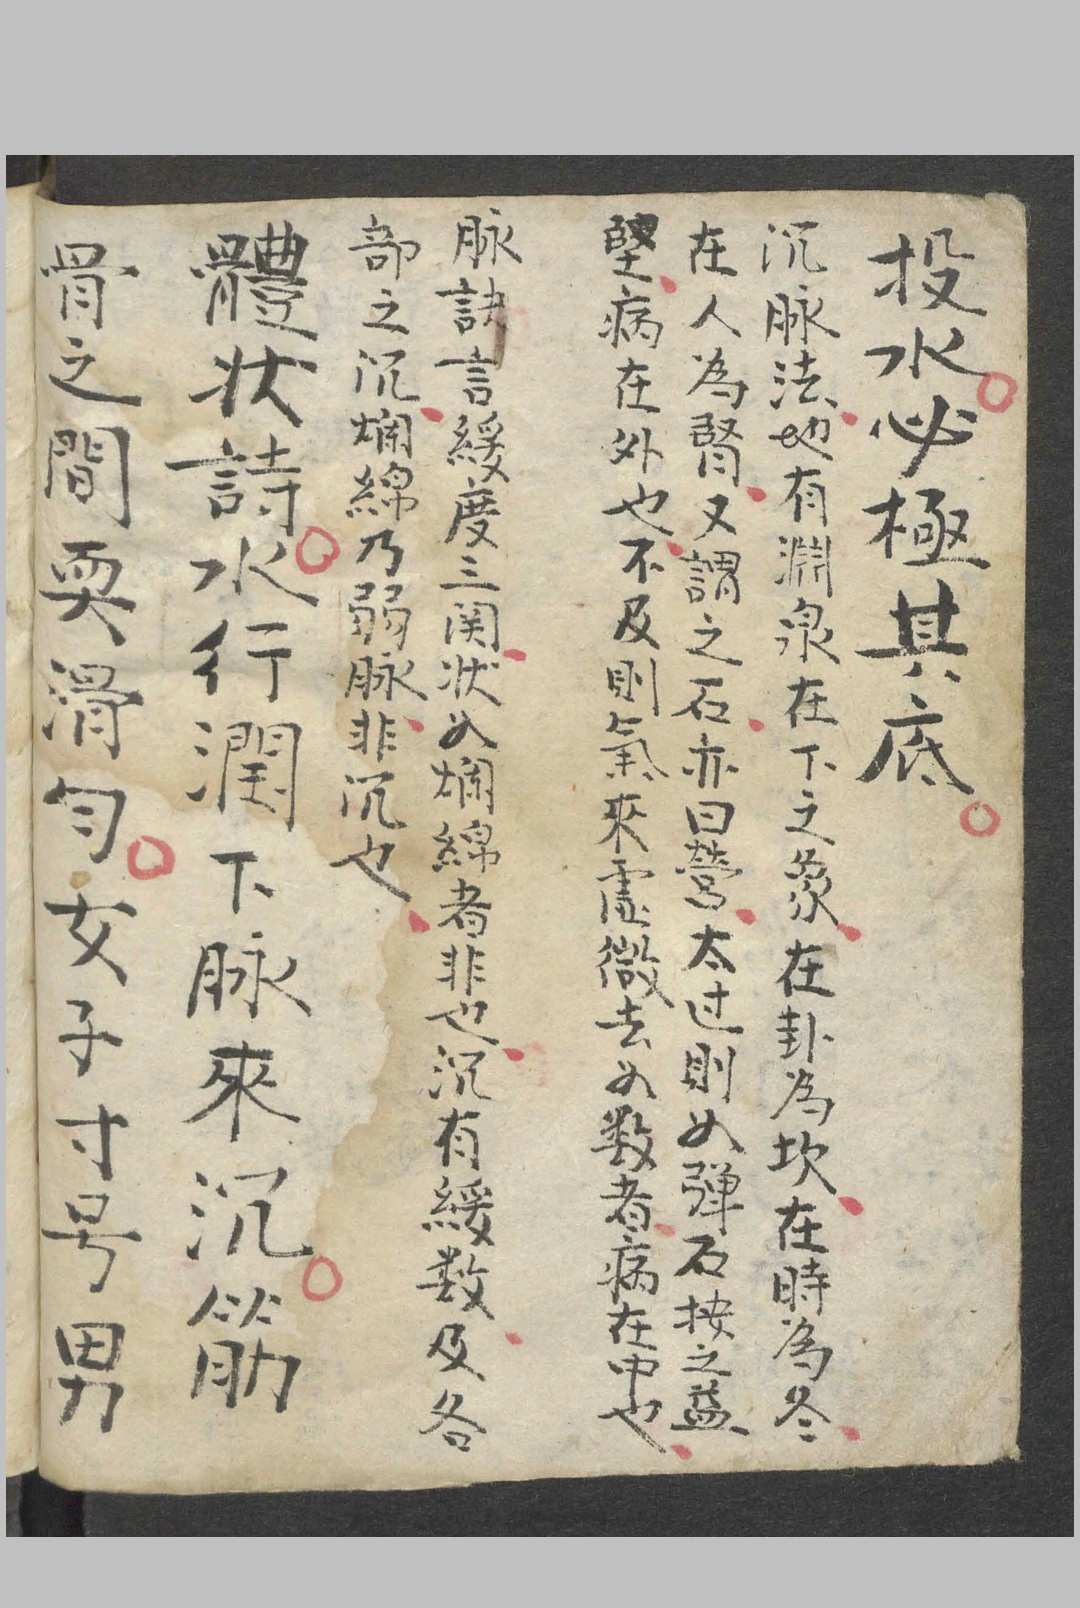 投水必極其底
沉脉法地有淵泉在下之象在卦為坎在時為冬
在人為腎又謂之石亦曰營太过則如弹石按之益
堅病在外也不及則氣來虛微去如数者病在中也
脉訣言緩度三関状如爛綿者非也沉有緩数及各
部之沉爛綿乃弱脉非沉也
體状詩水行潤下脉來沉筋
骨之間耎滑匀女子寸号男